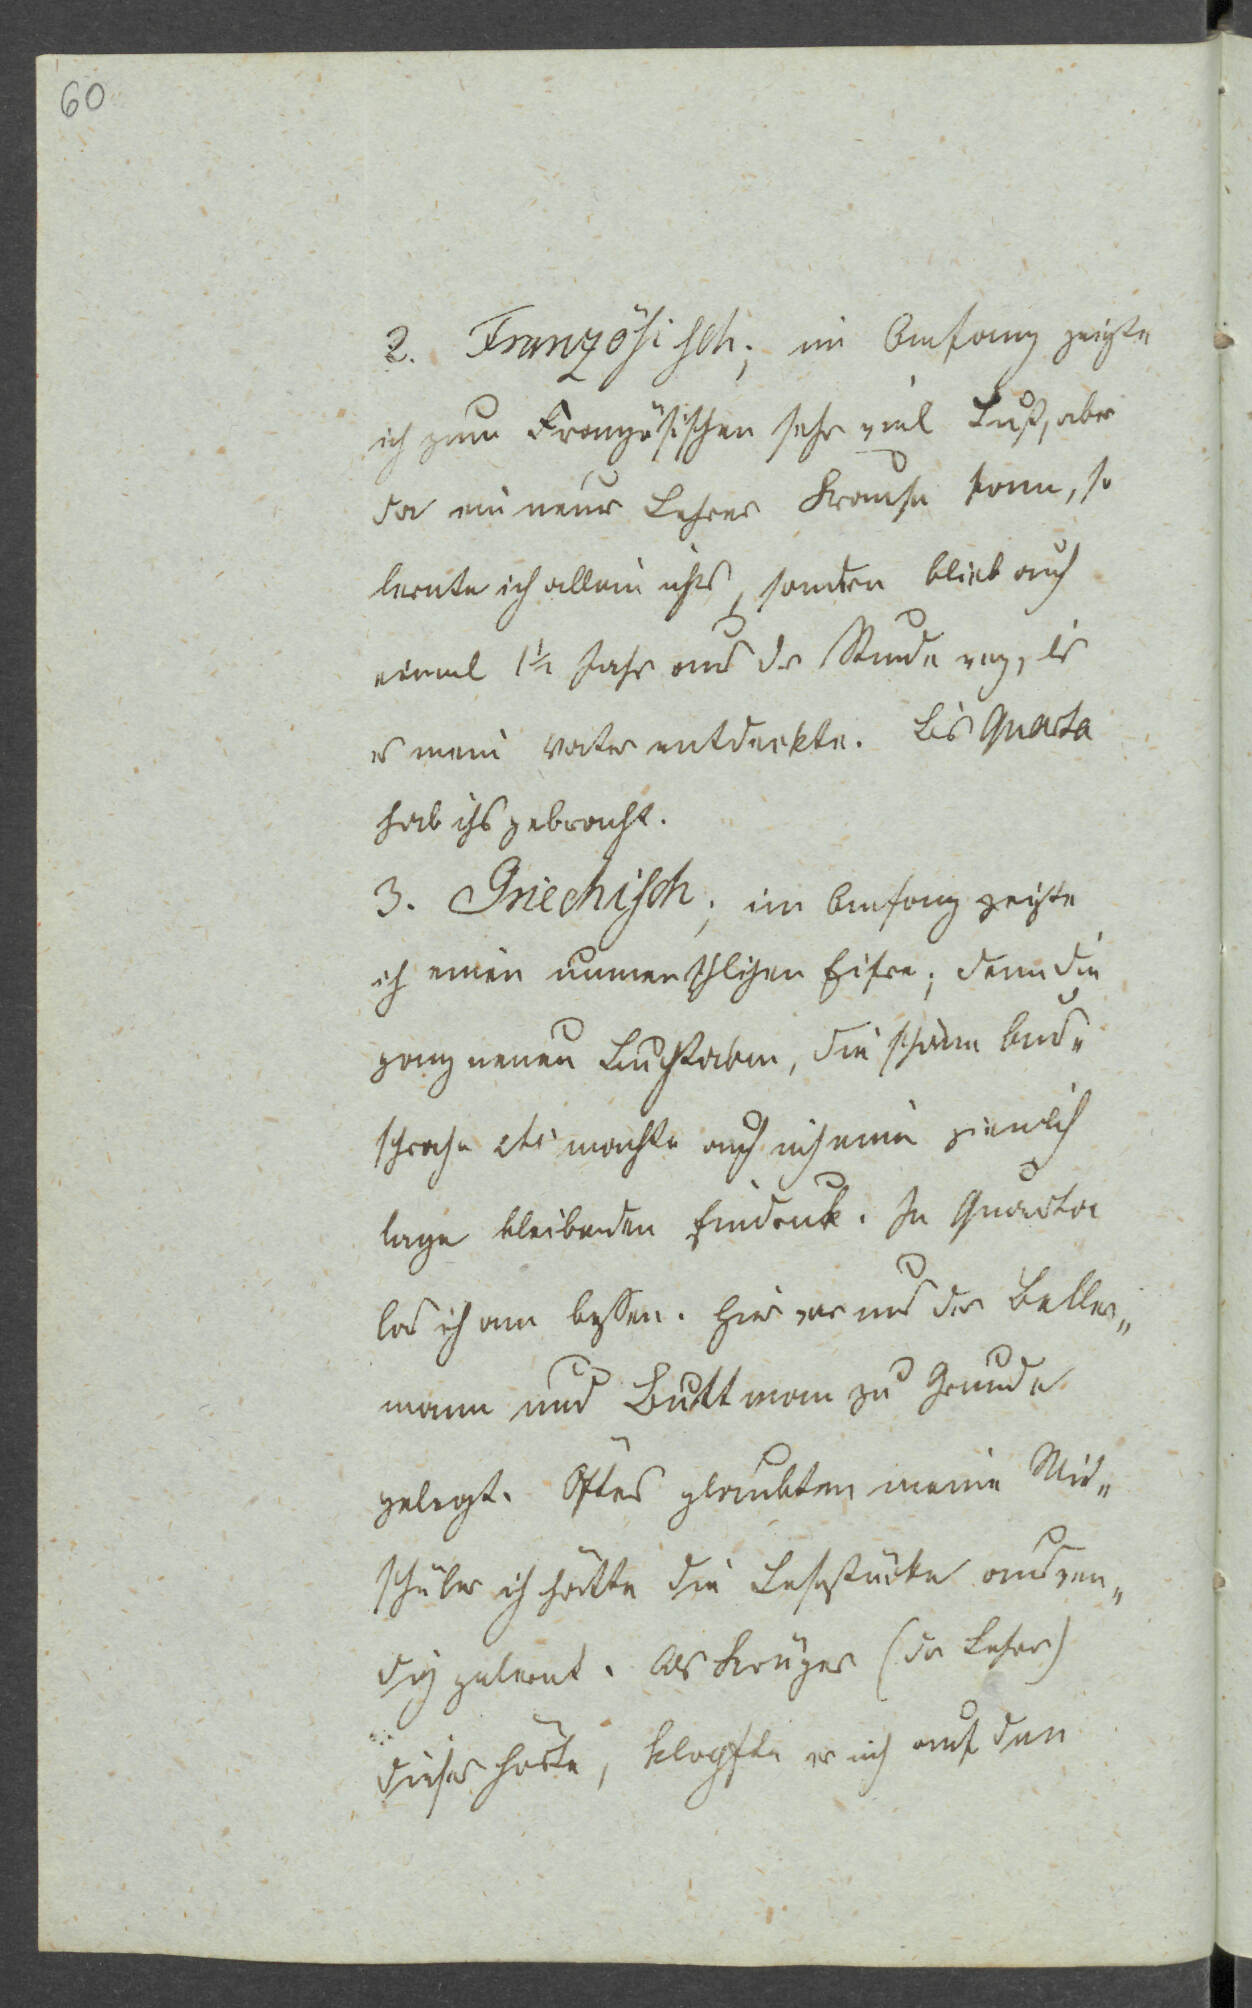 60
2. Französisch; im Anfang zeigte
ich zum Französischen sehr viel Lust, aber
da ein neuer Lehrer Krause kam, so
lernte ich allein nichts, sondern blieb auch
einmal 1½ Jahr aus der Stunde weg, bis
es mein Vater entdeckte. Bis Quarta
hab ichs gebracht.
3. Griechisch; im Anfang zeigte
ich einen unmenschligen Eifer; denn die
ganz neuen Buchstaben, die schöne Aus„
sprache etc machte auf mich einen ziemlich
lage bleibenden Eindruk. In Quarta
las ich am besten. Hier war uns der Beller„
mann und Buttmann zu Grunde
gelegt. Öfter glaubten meine Mit„
schüler ich hätte die Lesestücke auswen„
dig gelernt. Als Krüger (der Lehrer)
dieses hörte, klopfte er mich auf den